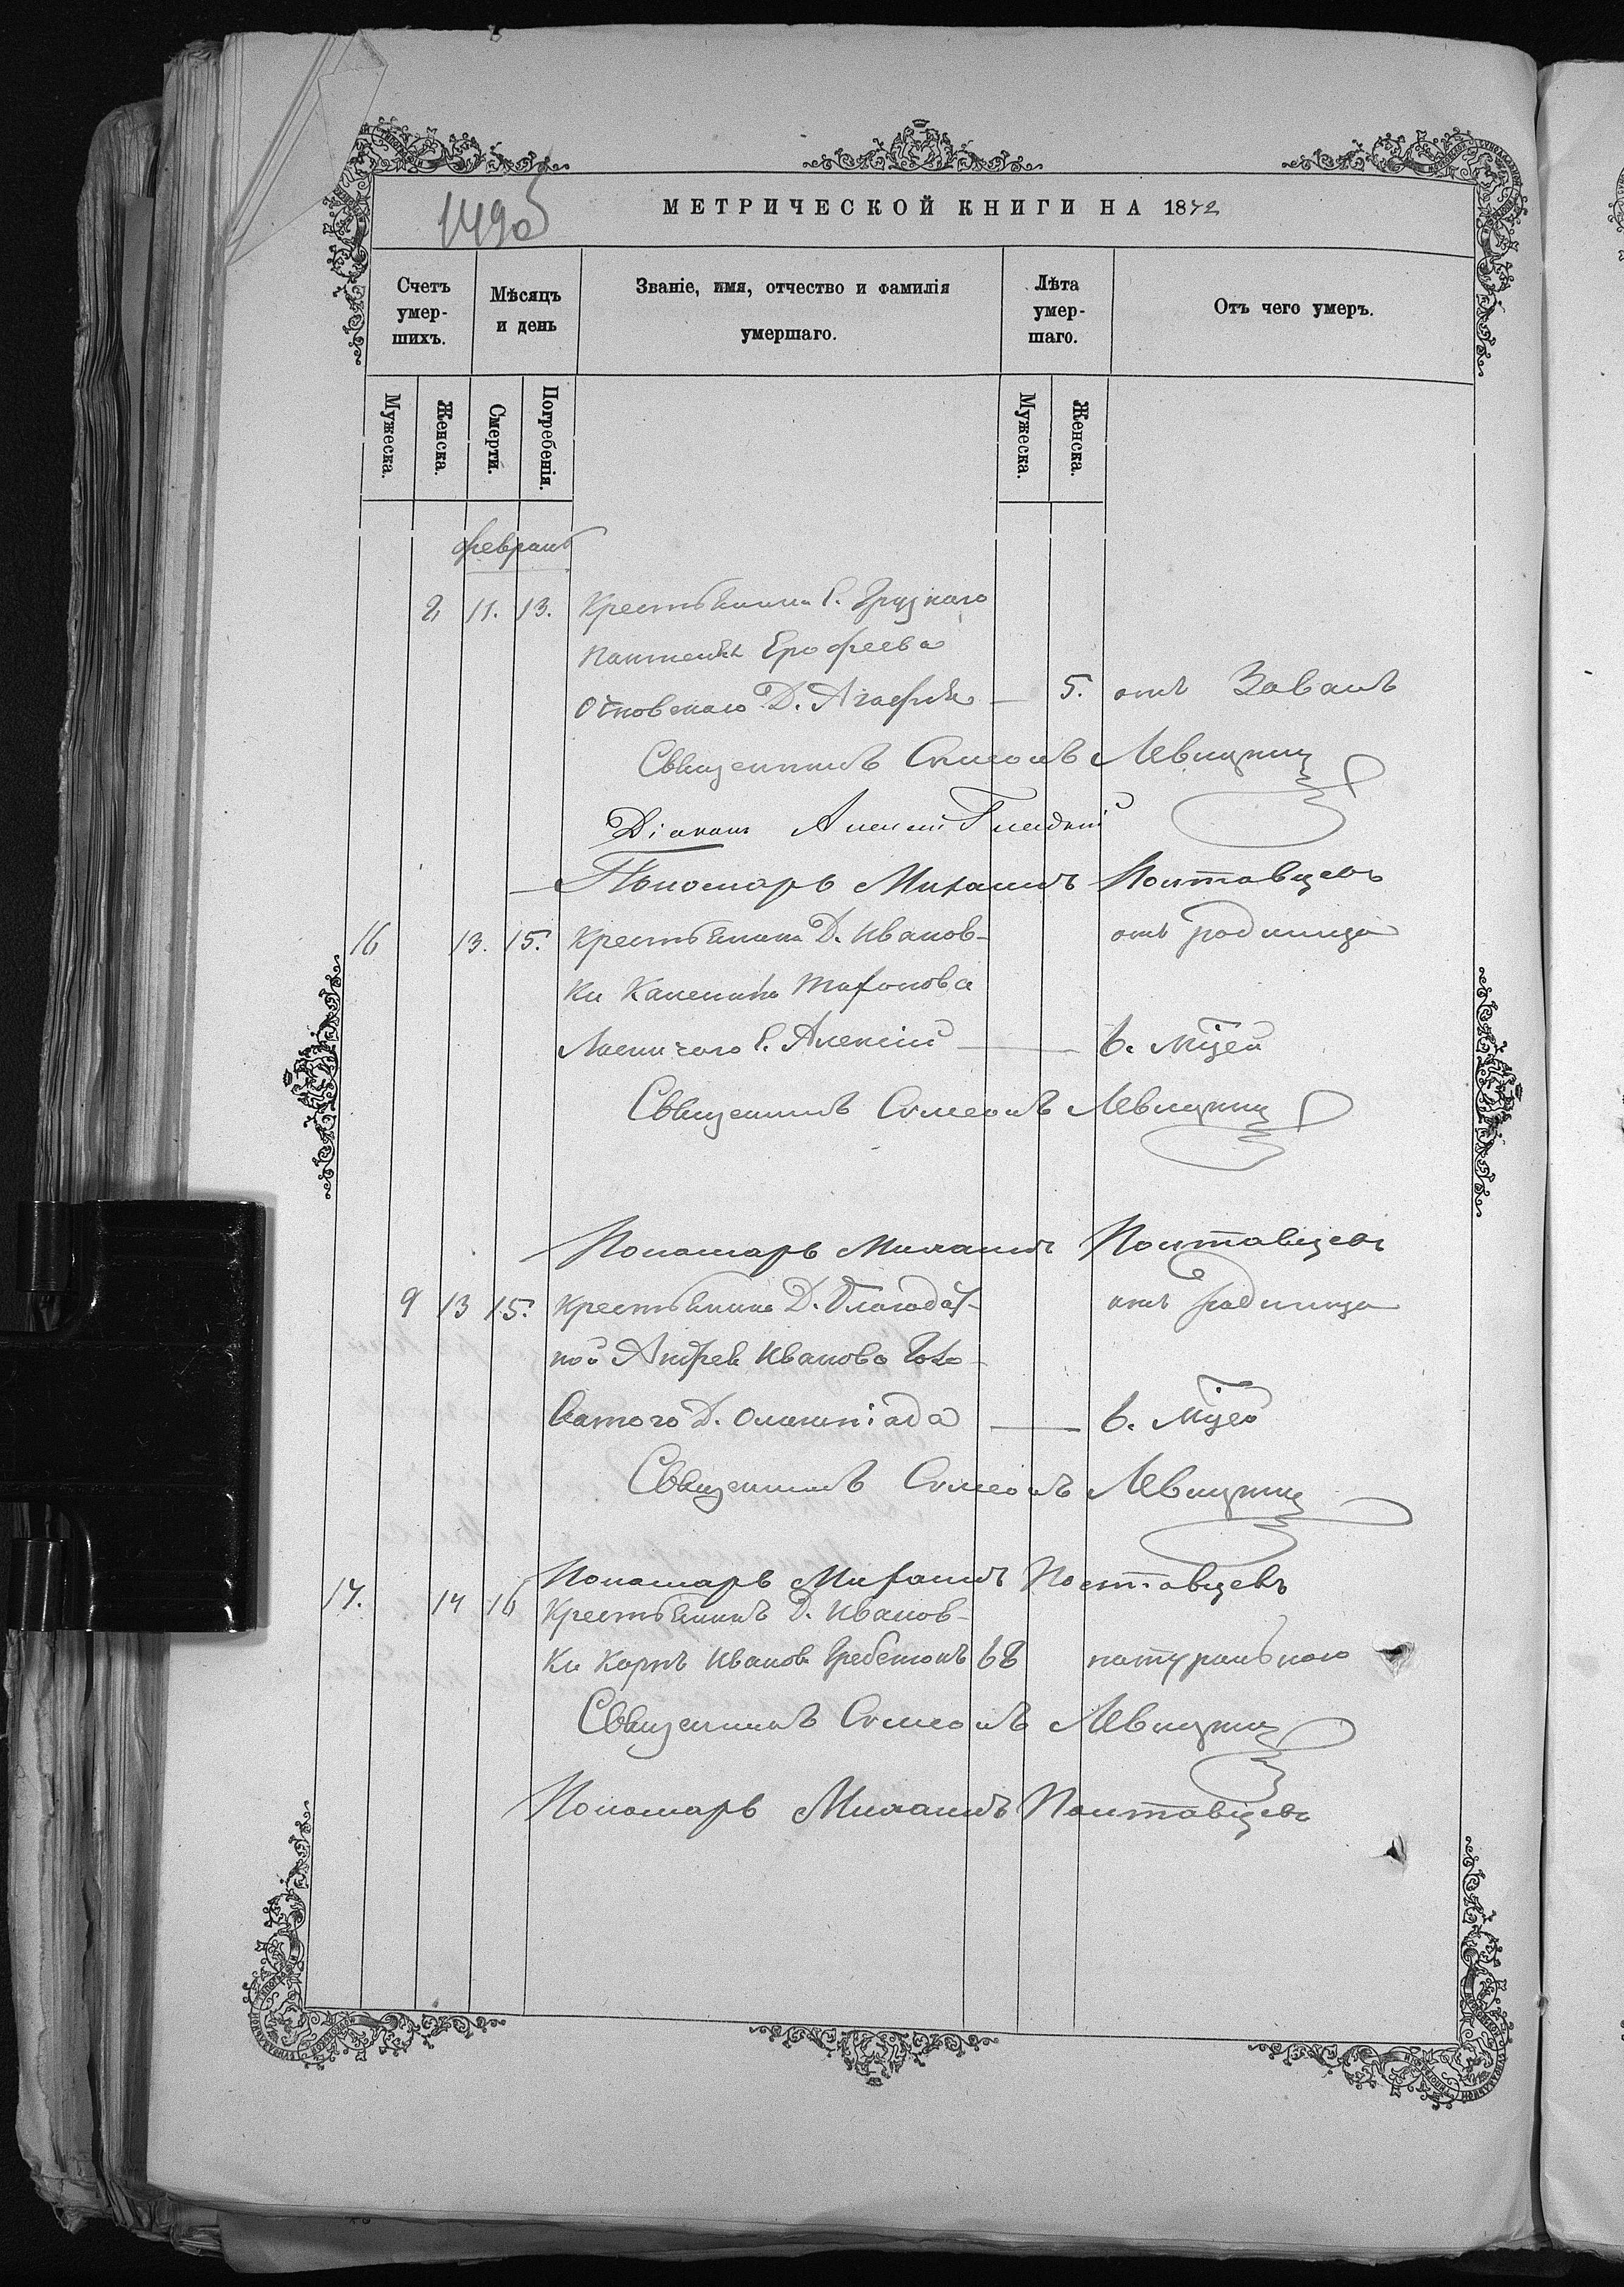 149об
МЕТРИЧЕСКОЙ КНИГИ НА 1872
Счетъ умер-шихъ.
Мѣсяцъ и день
Званіе, имя, отчество и фамилія умершаго.
Лѣта умер-шаго.
Отъ чего умеръ.
Мужеска.
Женска.
Смерти.
Погребенія.
Мужеска.
Женска.
февраль
11. 13. Крестьянина С. Грузкаго
Ерофеева
Д. Агафія — 5. отъ Заваль
Священникъ Симеонъ Левицкий
Діаконъ Алексій
Пономарь Михаилъ Полтавцевъ
16 13. 15. Крестьянина Д. Иванов- отъ родимца
ки Тихонова
С. Алексій — 6. мцей
Священникъ Симеонъ Левицкий
Пономарь Михаилъ Полтавцевъ
9 13 15. крестьянина Д. Благодат- отъ родимца
ной Андрея Иванова Голо-
ватого Д. Олимпіада — 6. мцей
Священникъ Симеонъ Левицкий
Пономарь Михаилъ Полтавцевъ
17. 14 16 Крестьянинъ Д. Иванов-
ки Карпъ Иванов 68 натурального
Священникъ Симеонъ Левицкий
Пономарь Михаилъ Полтавцевъ